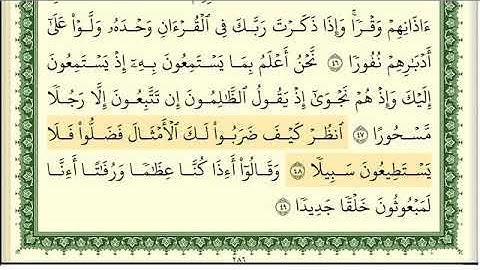 ءَاذَانِهِمْ وَقْرًاۚ وَإِذَا ذَكَرْتَ رَبَّكَ فِي ٱلْقُرْءَانِ وَحْدَهُۥ وَلَّوْا۟ عَلَىٰٓ
أَدْبَٰرِهِمْ نُفُورًا ٤٦ نَّحْنُ أَعْلَمُ بِمَا يَسْتَمِعُونَ بِهِۦٓ إِذْ يَسْتَمِعُونَ
إِلَيْكَ وَإِذْ هُمْ نَجْوَىٰٓ إِذْ يَقُولُ ٱلظَّٰلِمُونَ إِن تَتَّبِعُونَ إِلَّا رَجُلًا
مَّسْحُورًا ٤٧ ٱنظُرْ كَيْفَ ضَرَبُوا۟ لَكَ ٱلْأَمْثَالَ فَضَلُّوا۟ فَلَا
يَسْتَطِيعُونَ سَبِيلًا ٤٨ وَقَالُوٓا۟ أَءِذَا كُنَّا عِظَٰمًا وَرُفَٰتًا أَءِنَّا
لَمَبْعُوثُونَ خَلْقًا جَدِيدًا ٤٩
٢٨٦